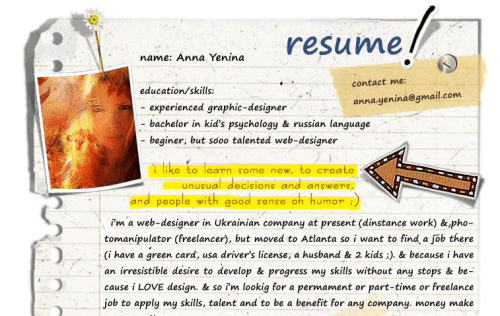 resume!
name: Anna Yenina
contact me:
anna.yenina@gmail.com
education/skills:
- experienced graphic-designer
- bachelor in kid's psychology & russian language
- beginer, but sooo talented web-designer
i like to learn some new, to create
unusual decisions and answers,
and people with good sense oh humor ;)
i'm a web-designer in Ukrainian company at present (dinstance work) & pho-
tomanipulator (freelancer), but moved to Atlanta so i want to find a job there
(i have a green card, usa driver's license, a husband & 2 kids ;). & because i have
an irresistible desire to develop & progress my skills without any stops & be-
cause i LOVE design. & so i'm lookig for a permament or part-time or freelance
job to apply my skills, talent and to be a benefit for any company. money make